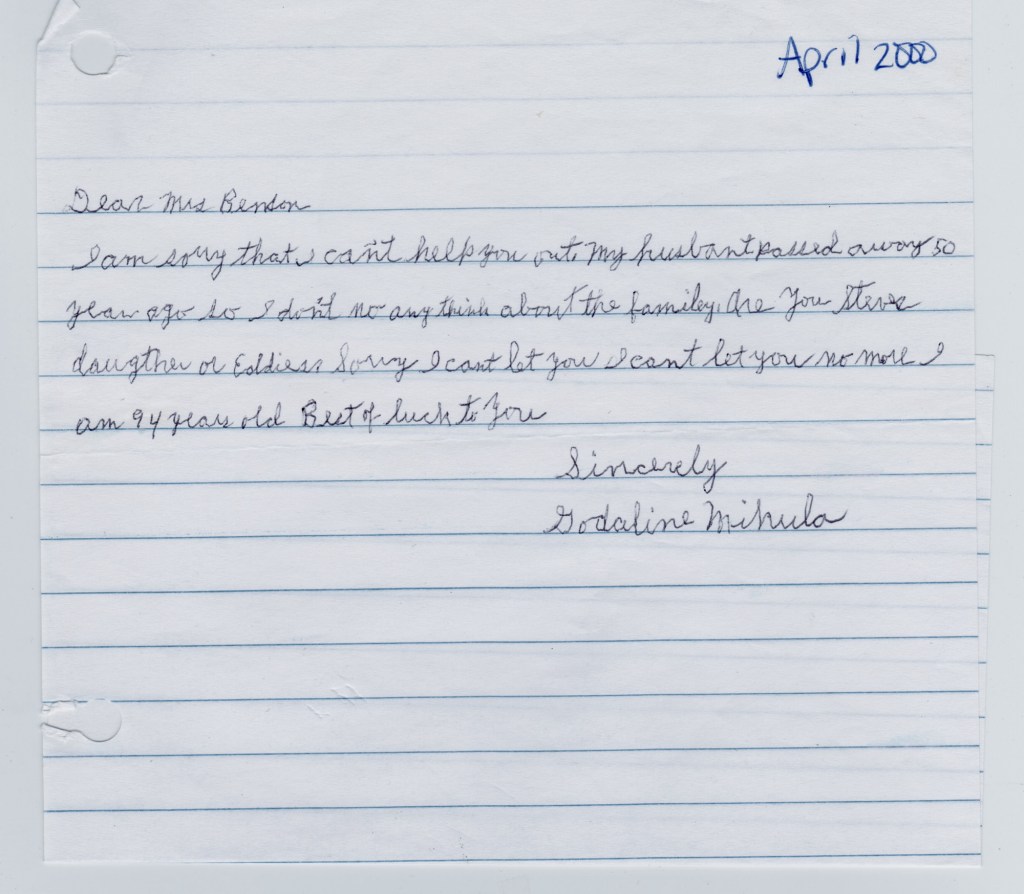 April 2000
Dear Mrs Benson
I am sorry that I can't help you out. My husbant passed away 50
years ago so I don't no any think about the familey. Are You Steves
daugther or Eddiess Sorry I cant let you I can't let you no more I
am 94 years old Best of luck to You
Sincerely
Godaline Mihula